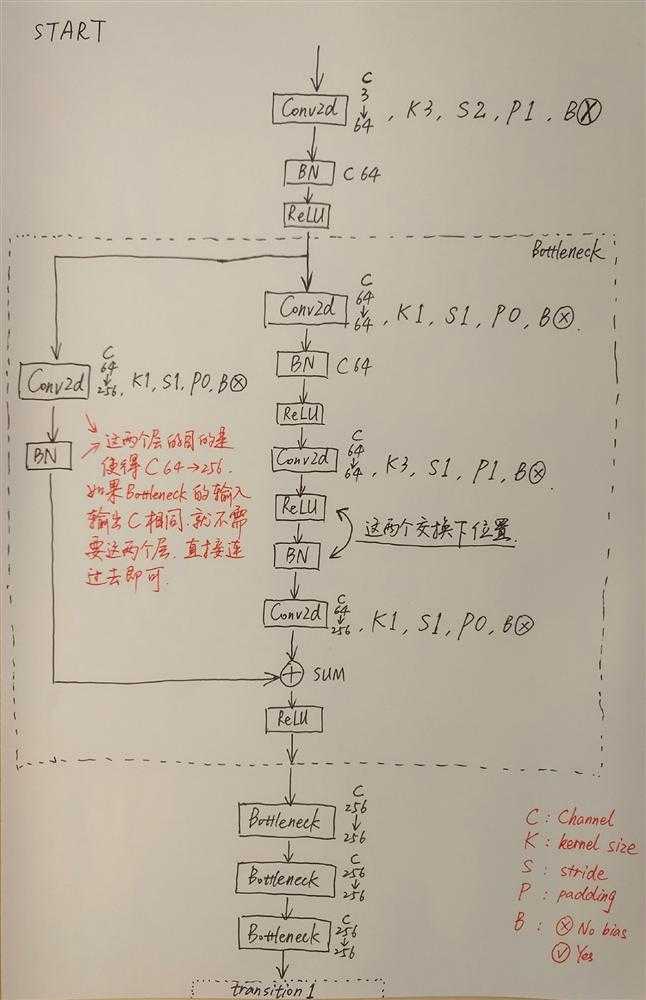 START
C
3
Conv2d
64, K3, S2, P1, B⊗
BN C 64
ReLU
Bottleneck
C
64
Conv2d
64, K1, S1, P0, B⊗.
BN C 64
C
64
Conv2d
256, K1, S1, P0, B⊗
ReLU
BN
这两个层的目的是
使得 C 64→256.
如果 Bottleneck 的输入
输出 C 相同. 就不需
要这两个层. 直接连
过去即可.
C
64
Conv2d
64, K3, S1, P1, B⊗.
ReLU
这两个交换下位置.
BN
C
64
Conv2d
256, K1, S1, P0, B⊗
SUM
ReLU
C
256
Bottleneck
256
C
256
Bottleneck
256
C
256
Bottleneck
256
transition 1
C : Channel
K : kernel size
S : stride
P : padding
B : ⊗ No bias
Yes